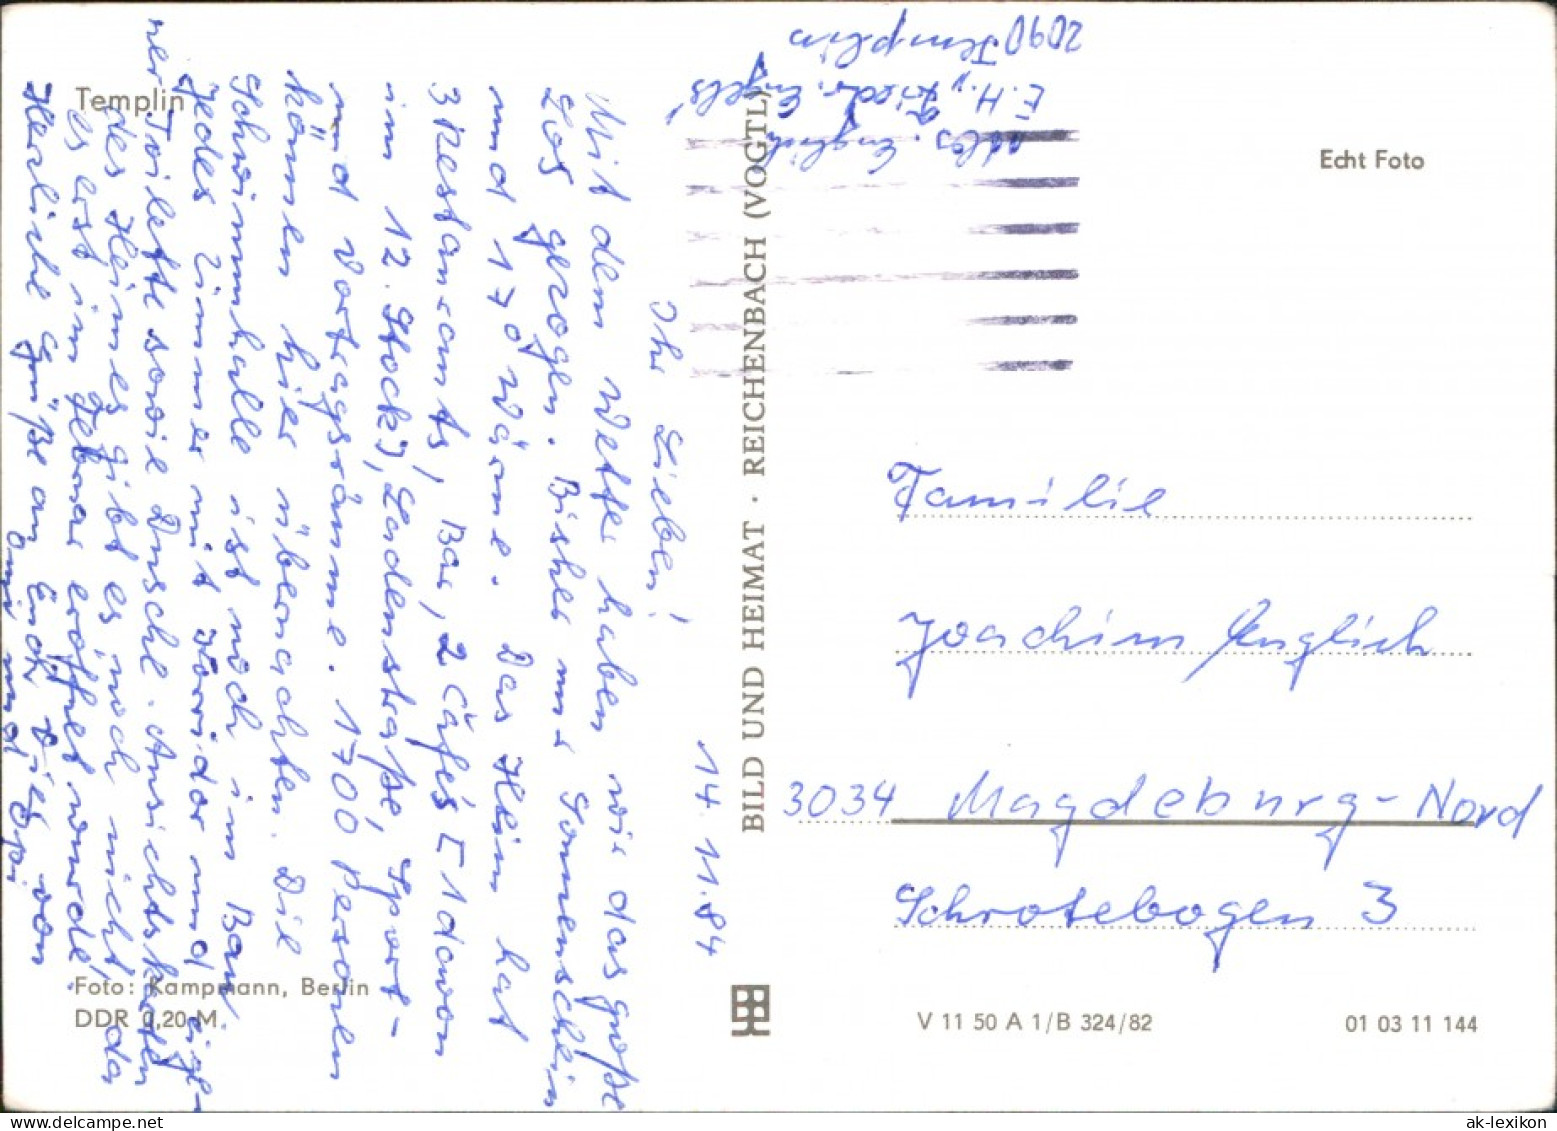 Templin
14.11.84
Ihr Lieben!
Mit dem Wetter haben wir das große
Los gezogen. Bisher nur Sonnenschein
und 17° Wärme. Das Heim hat
3 Restaurants, Bar, 2 Cafés [1 davon
im 12. Stock], Ladenstraße, Sport-
und Vortragsräume. 1700 Personen
können hier übernachten. Die
Schwimmhalle ist noch im Bau.
Jedes Zimmer mit Korridor und eige-
ner Toilette sowie Dusche. Ansichtskarten
des Heimes gibt es noch nicht, da
es erst im Februar eröffnet wurde.
Herzliche Grüße an Euch Drei von
Omi und Opi
Foto: Kampmann, Berlin
DDR 0,20 M
BILD UND HEIMAT · REICHENBACH (VOGTL)
Abs. Englich
E.H. „Friedr. Engels"
2090 Templin
Echt Foto
Familie
Joachim Englich
3034 Magdeburg-Nord
Schrotebogen 3
V 11 50 A 1/B 324/82
01 03 11 144
ak-lexikon